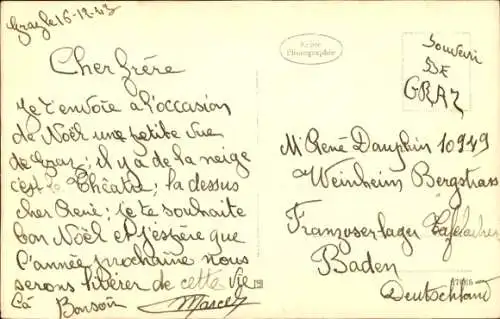 Graz le 16-12-43
Cher frère
Je t'envoie à l'occasion
de Noël une petite vue
de Graz; il y a de la neige
c'est le Théatre; la dessus
cher René; je te souhaite
bon Noël et j'espère que
l'année prochaine nous
serons libérer de cette vie
Là Bonsoir Marcel
Echte
Photographie
Souvenir
DE
GRAZ
Mr René Dauphin 10949
Weinheim Bergstrass
Franzoserlager
Baden
Deutschland